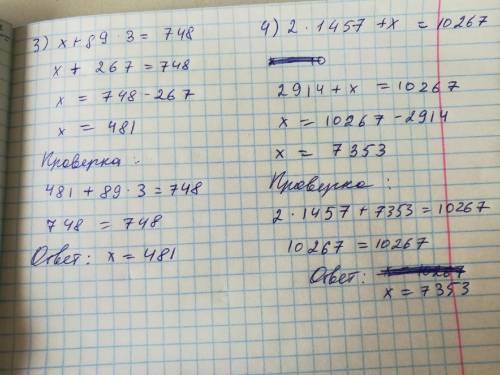 3) x + 89 · 3 = 748
x + 267 = 748
x = 748 - 267
x = 481
Проверка :
481 + 89 · 3 = 748
748 = 748
Ответ: x = 481
4) 2 · 1457 + x = 10267
2914 + x = 10267
x = 10267 - 2914
x = 7353
Проверка :
2 · 1457 + 7353 = 10267
10267 = 10267
Ответ: x = 10267
x = 7353